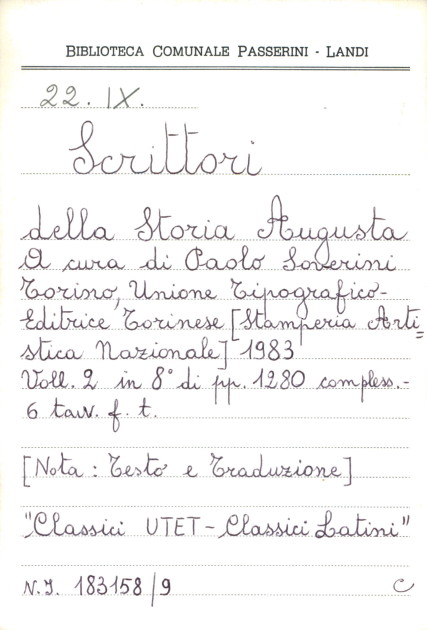 BIBLIOTECA COMUNALE PASSERINI - LANDI
22. IX.
Scrittori
della Storia Augusta
A cura di Paolo Soverini
Torino, Unione Tipografico-
Editrice Torinese [Stamperia Arti=
stica Nazionale] 1983
Voll. 2 in 8° di pp. 1280 compless.-
6 tavv. f. t.
[Nota: Testo e Traduzione]
"Classici UTET - Classici Latini"
N.I. 183158/9 C